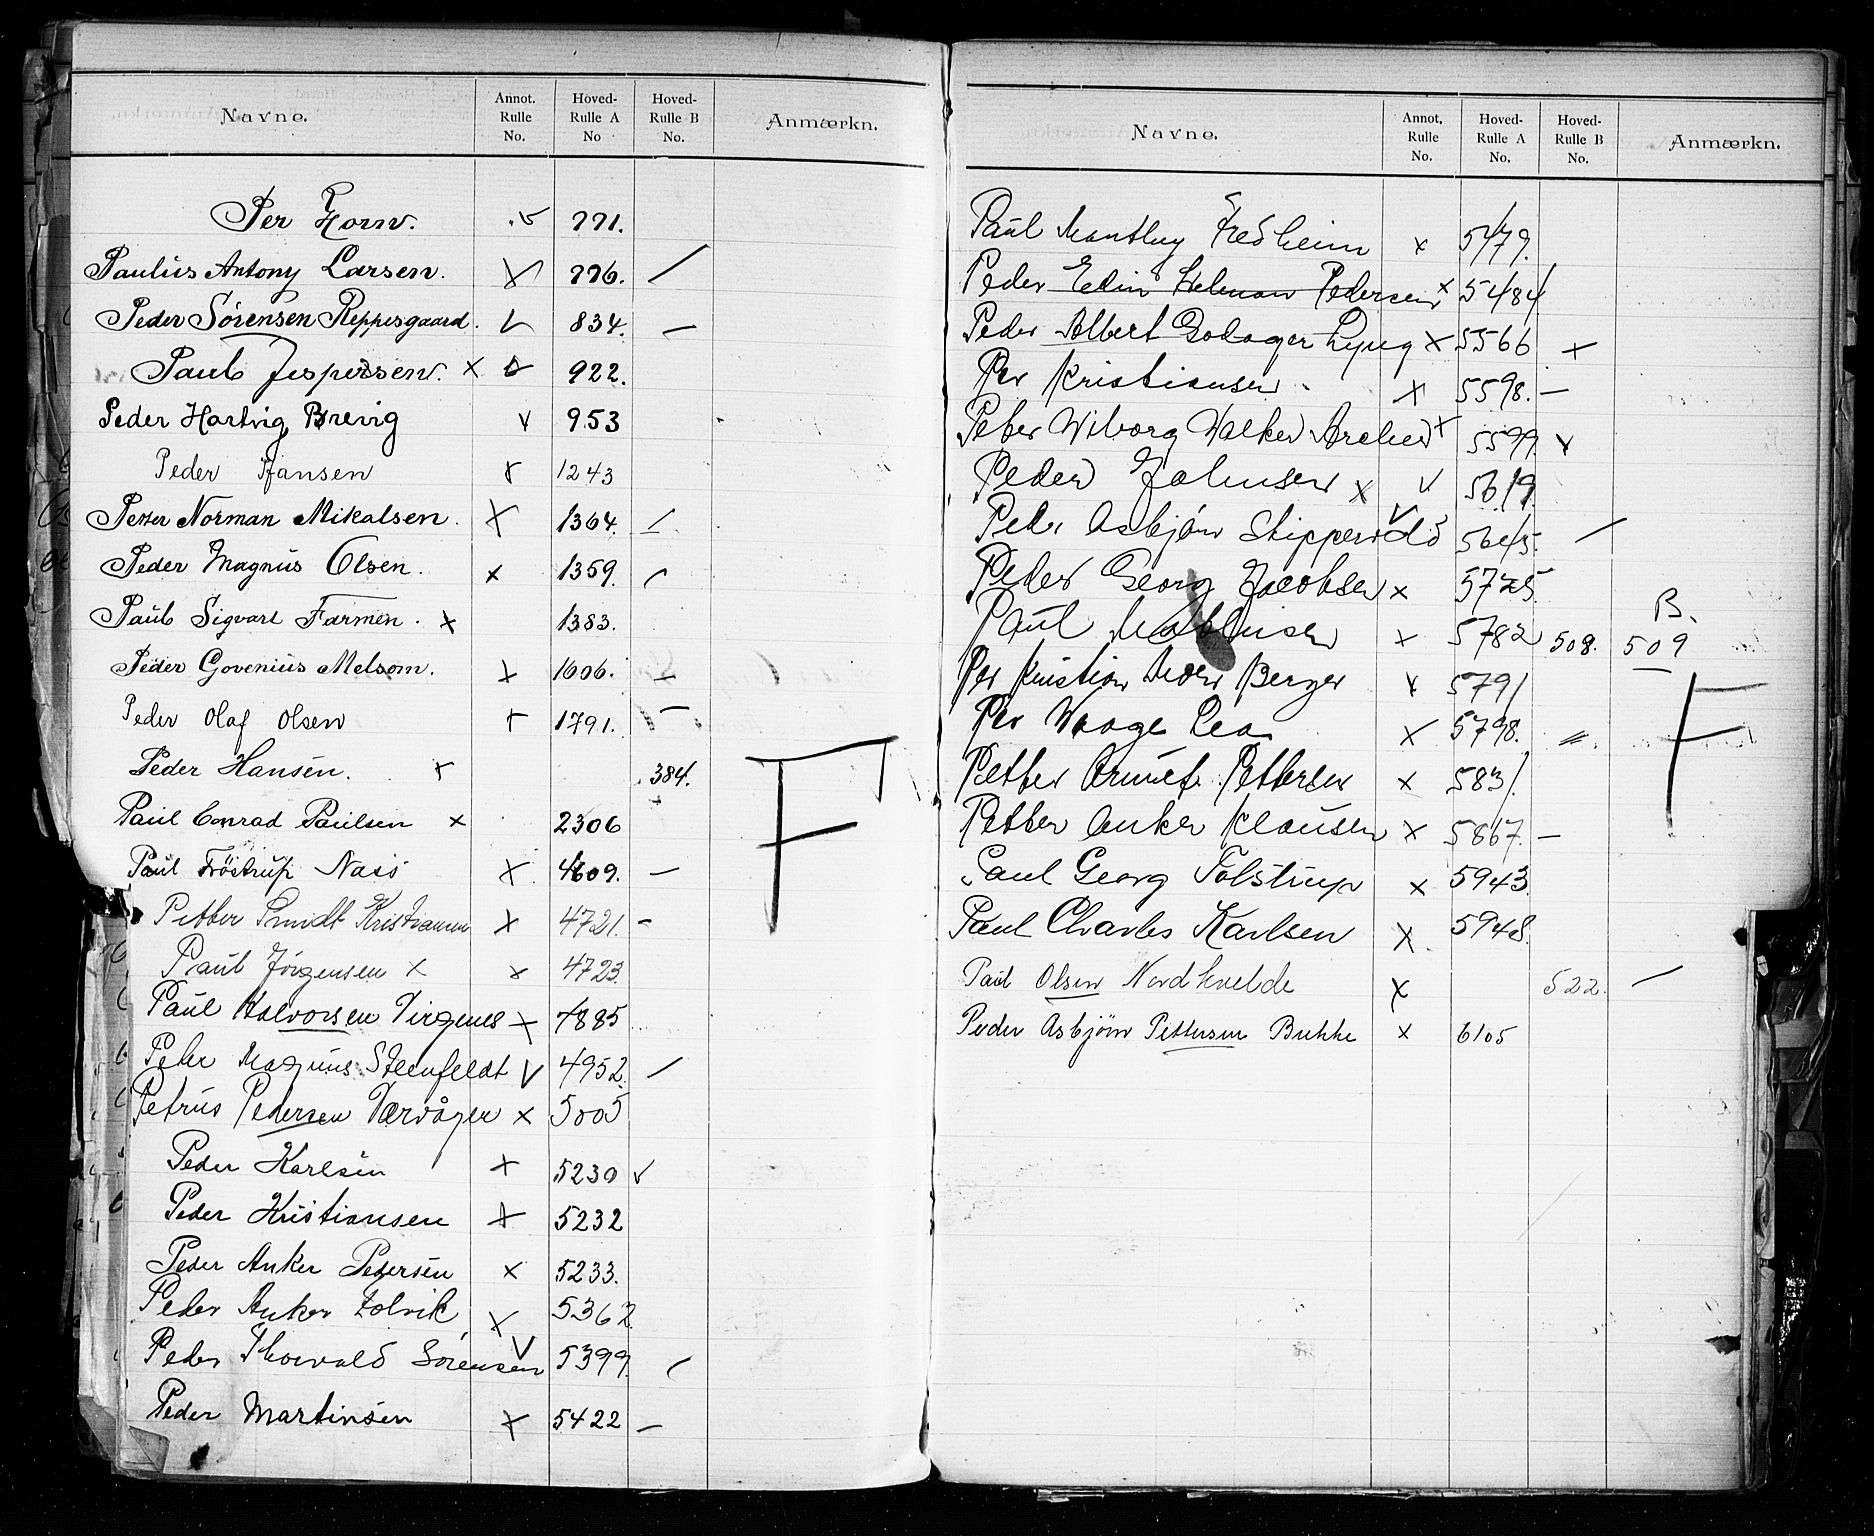 Navne. Annot. Rulle No. Hoved-Rulle A No Hoved-Rulle B No. Anmærkn.
Per Horn. v 771.
Paulus Antony Larsen. x 776. /
Peder Sörensen Reppesgaard. v 834. –
Paul Jespersen. x v 922.
Peder Hartvig Brevig v 953
Peder Hansen x 1243
Petter Norman Mikalsen. x 1364. /
Peder Magnus Olsen. x 1359. /
Paul Sigvart Farmen. x 1383.
Peder Govenius Melsom. x 1606. –
Peder Olaf Olsen x 1791. –
Peder Hansen. x 384. F
Paul Conrad Paulsen x 2306
Paul Fröstrup Nass x 4609. –
Petter Smidt Kristiansen x 4721. –
Paul Jörgensen x x 4723.
Paul Halvorsen Virgenes x 4885
Peter Magnus Steenfeldt v 4952. /
Petrus Pedersen Værvågen x 5005
Peder Karlsen x 5230 v
Peder Kristiansen x 5232
Peder Anker Pedersen x 5233.
Peder Anker Solvik x 5362
Peder Thorvald Sörensen v 5399. /
Peder Martinsen x 5422 –
Navne. Annot. Rulle No. Hoved-Rulle A No. Hoved-Rulle B No. Anmærkn.
Paul Manthey Fredheim x 5479.
Peder Edin Helman Pedersen x 5484
Peder Albert Godager Lyng x 5566 x
Per Kristiansen x 5598. –
Peter Wiborg Walker Archer x 5599. x
Peder Johnsen x v 5619
Peder Asbjörn Skipperud v 5645. /
Peder Georg Jacobsen x 5725.
Paul x 5782 508. B. 509
Per Kristian Berger x 5791
Per Waage Lea x 5798. F
Petter Pettersen x 5831.
Petter Anker Klausen x 5867. –
Paul Georg Tolstrup x 5943.
Paul Charles Karlsen x 5948.
Paul Olsen Nordhvelde x 522. –
Peder Asbjörn Pettersen Buhke x 6105